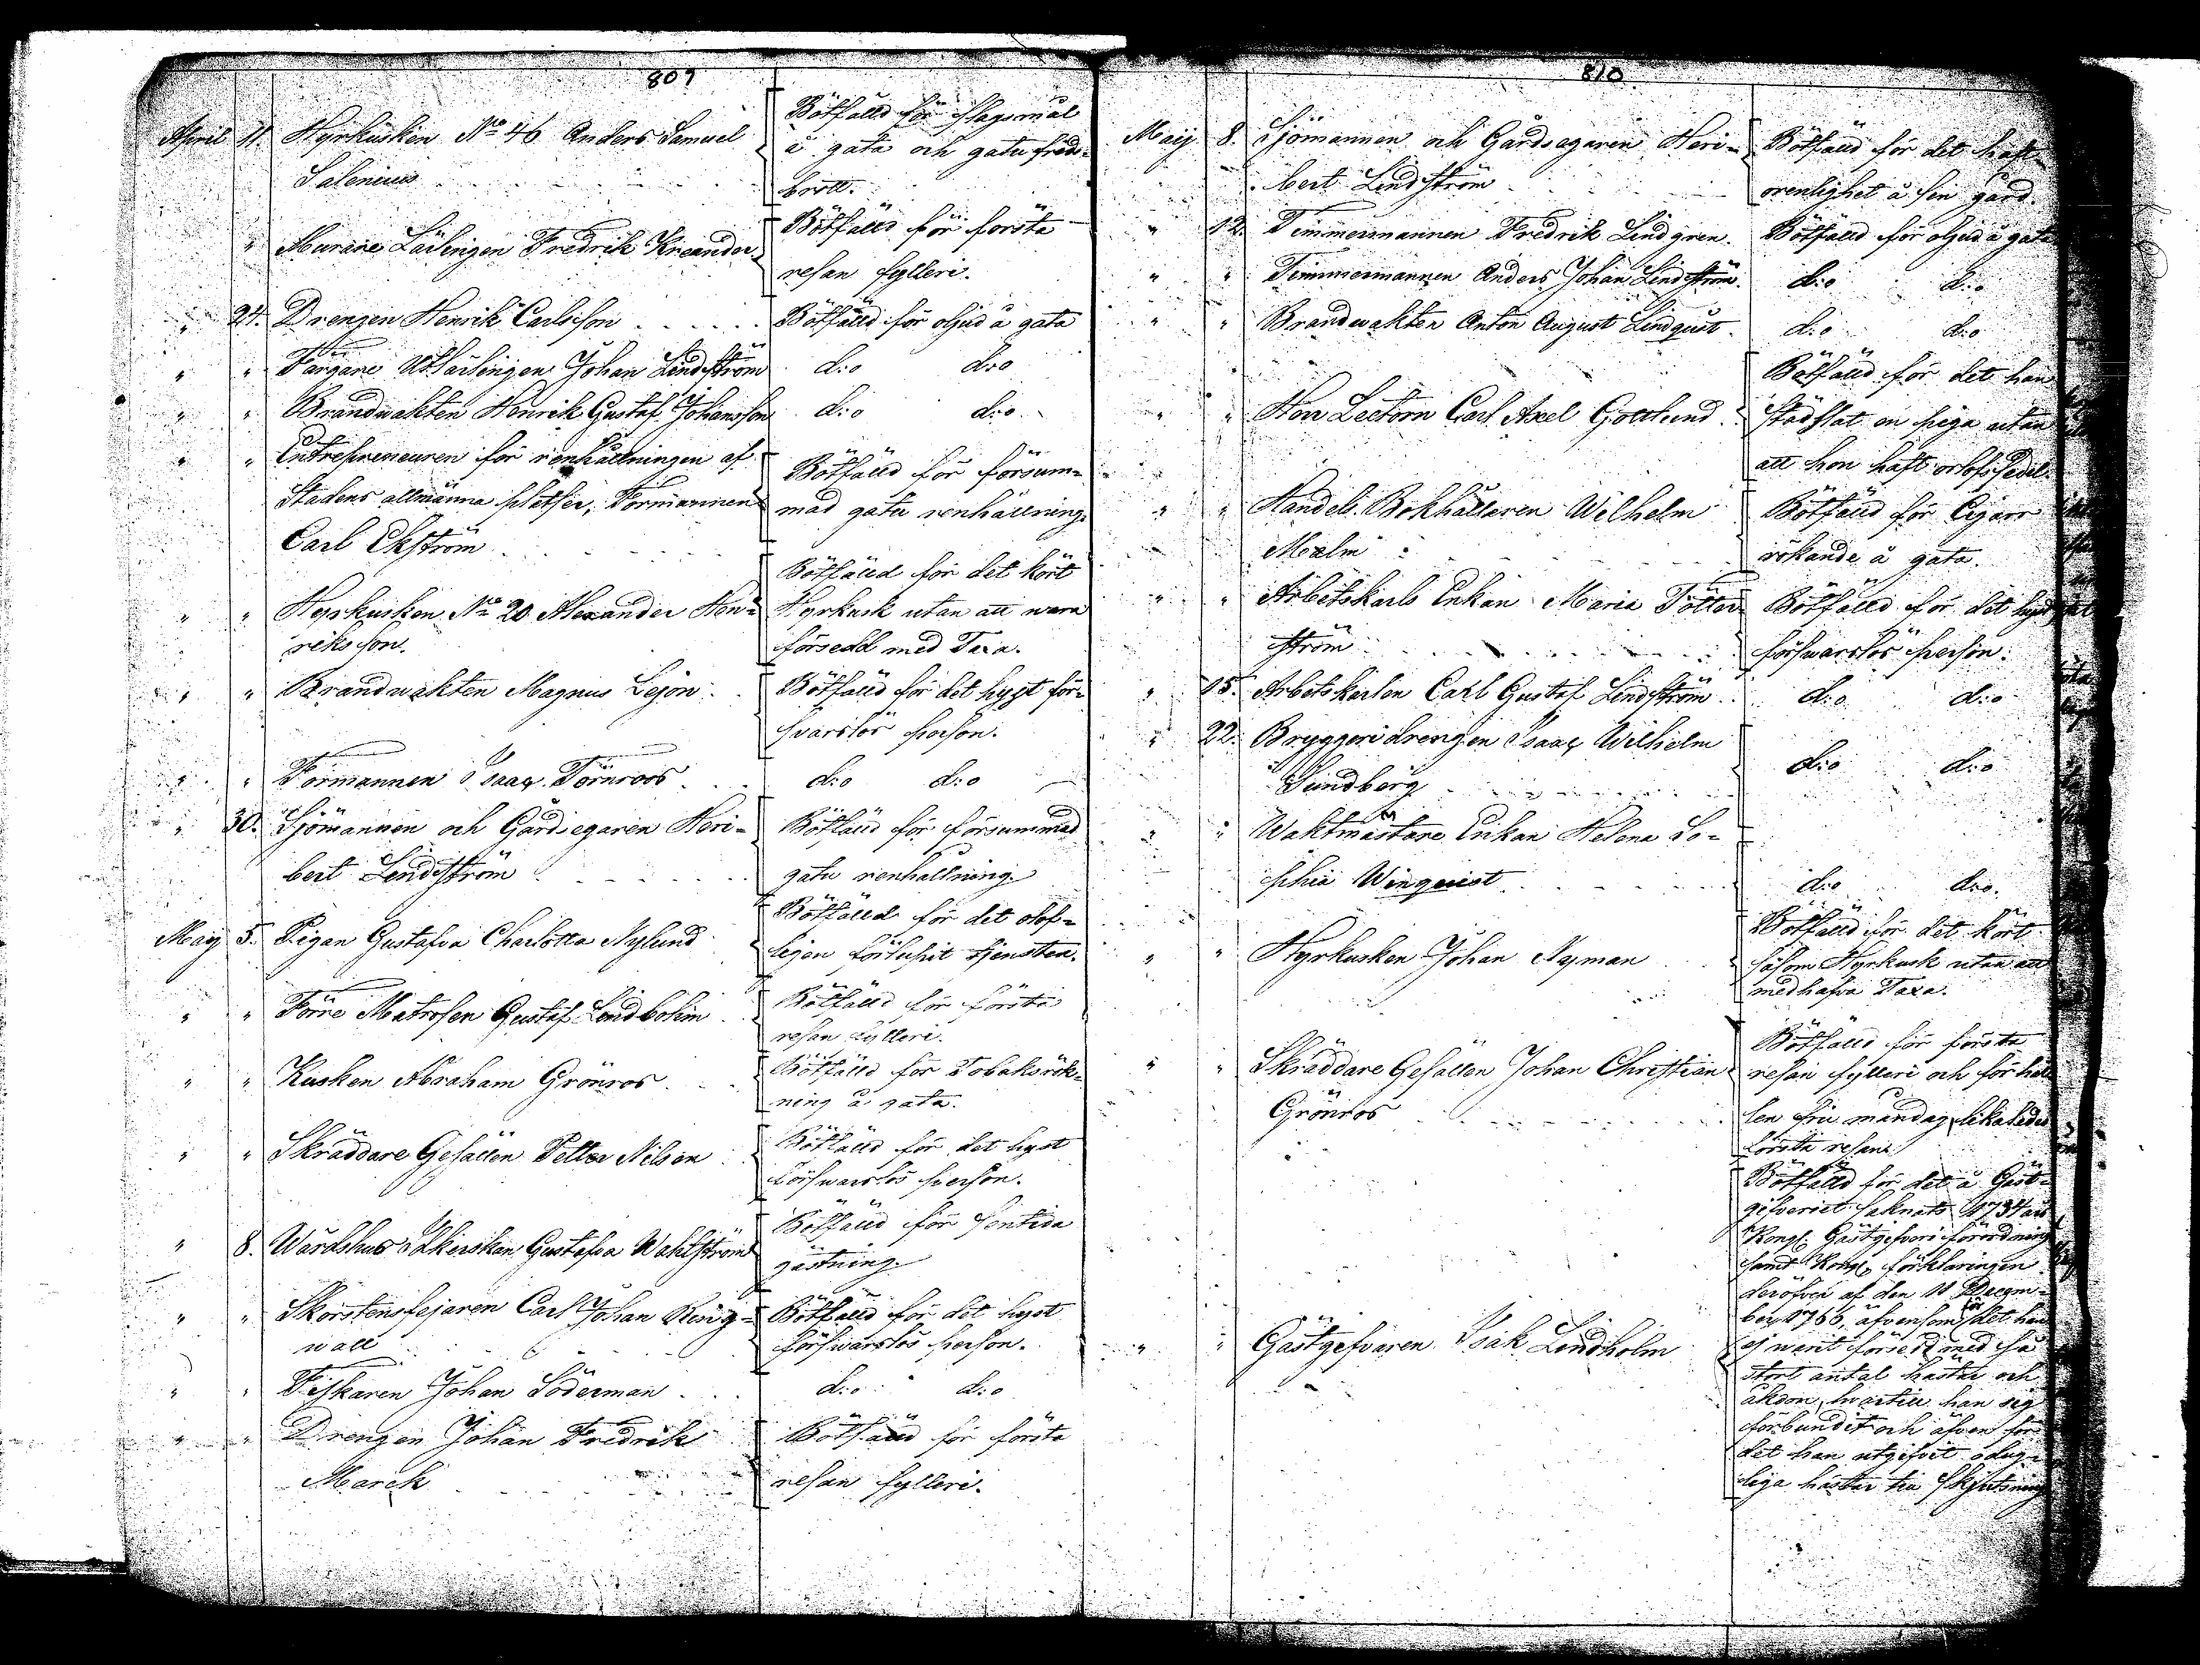 809
April 11. Hyrkusken No 46 Anders Samuel
Salenius
Bötfälld för slagsmål
å gata och gatu freds-
brott.
" Murare Lärlingen Fredrik Kreander
Bötfälld för första
resan fylleri.
" 21. Drengen Henrik Carlsson
Bötfälld för oljud å gata
" " Färgare Lärlingen Johan Lindström d:o d:o
" " Brandwakten Henrik Gustaf Johansson d:o d:o
" " Entreprenieuren för renhållningen af
Stadens allmänna platser, Formannen
Carl Ekström
Bötfälld för försum-
mad gatu renhållning.
" " Hyrkusken No 20 Alexander Hen-
riksson.
Bötfälld för det kört
Hyrkusk utan att wara
försedd med Taxa.
" " Brandwakten Magnus Lejon
Bötfälld för det hyst för-
svarslös person.
" " Formannen Isaac Törnroos d:o d:o
" 30. Sjömannen och Gårdsegaren Heri-
bert Lindström
Bötfälld för försummad
gatu renhållning.
Maij 5. Pigan Gustafva Charlotta Nylund
Bötfälld för det olof-
ligen förlupit tjensten.
" " Förre Matrosen Gustaf Lindbohm
Bötfälld för första
resan fylleri.
" " Kusken Abraham Grönros
Bötfälld för Tobaksrök-
ning å gata.
" " Skräddare Gesällen Petter Nilsen
Bötfälld för det hyst
försvarslös person.
" 8. Wärdshus Idkerskan Gustafva Wahlström
Bötfälld för sentida
gästning.
" " Skorstensfejaren Carl Johan Reng-
wall
Bötfälld för det hyst
försvarslös person.
" " Fiskaren Johan Söderman d:o d:o
" " Drengen Johan Fredrik
Marck
Bötfälld för första
resan fylleri.
810
Maij 8. Sjömannen och Gårdsegaren Heri-
bert Lindström
Bötfälld för det haft
orenlighet å sin gård.
" 12. Timmermannen Fredrik Lindgren. Bötfälld för oljud å gata
" " Timmermannen Anders Johan Lindström. d:o d:o
" " Brandwakten Anton August Lindqvist. d:o d:o
" " Herr Lectorn Carl Axel Gottlund
Bötfälld för det han
städslat en piga utan
att hon haft orlofssedel.
" " Handels Bokhållaren Wilhelm
Moxlin
Bötfälld för Cigarr
rökande å gata.
" " Arbetskarls Enkan Maria Tötter-
ström
Bötfälld för det hyst
försvarslös person.
" 15. Arbetskarlen Carl Gustaf Lindström d:o d:o
" 22. Bryggeridrengen Isaac Wilhelm
Sundberg
d:o d:o
" " Waktmästare Enkan Helena So-
phia Winqvist
d:o d:o.
" " Hyrkusken Johan Nyman
Bötfälld för det kört
såsom Hyrkusk utan att
medhafva Taxa.
" " Skräddare Gesällen Johan Christian
Grönros
Bötfälld för första
resan fylleri och för hål-
len fri måndag likaledes
första resan.
" " Gästgifvaren Isak Lindholm
Bötfälld för det å Gäst-
gifveriet saknats 1734 års
Kongl. Gästgifveri förordning
samt Kongl. förklaringen
deröfver af den 11 Decem-
ber 1766, äfvensom för det han
ej warit försedd med så
stort antal hästar och
åkdon, hvartill han sig
förbundit och äfven för
det han utgifvit odug-
liga hästar till skjutsning